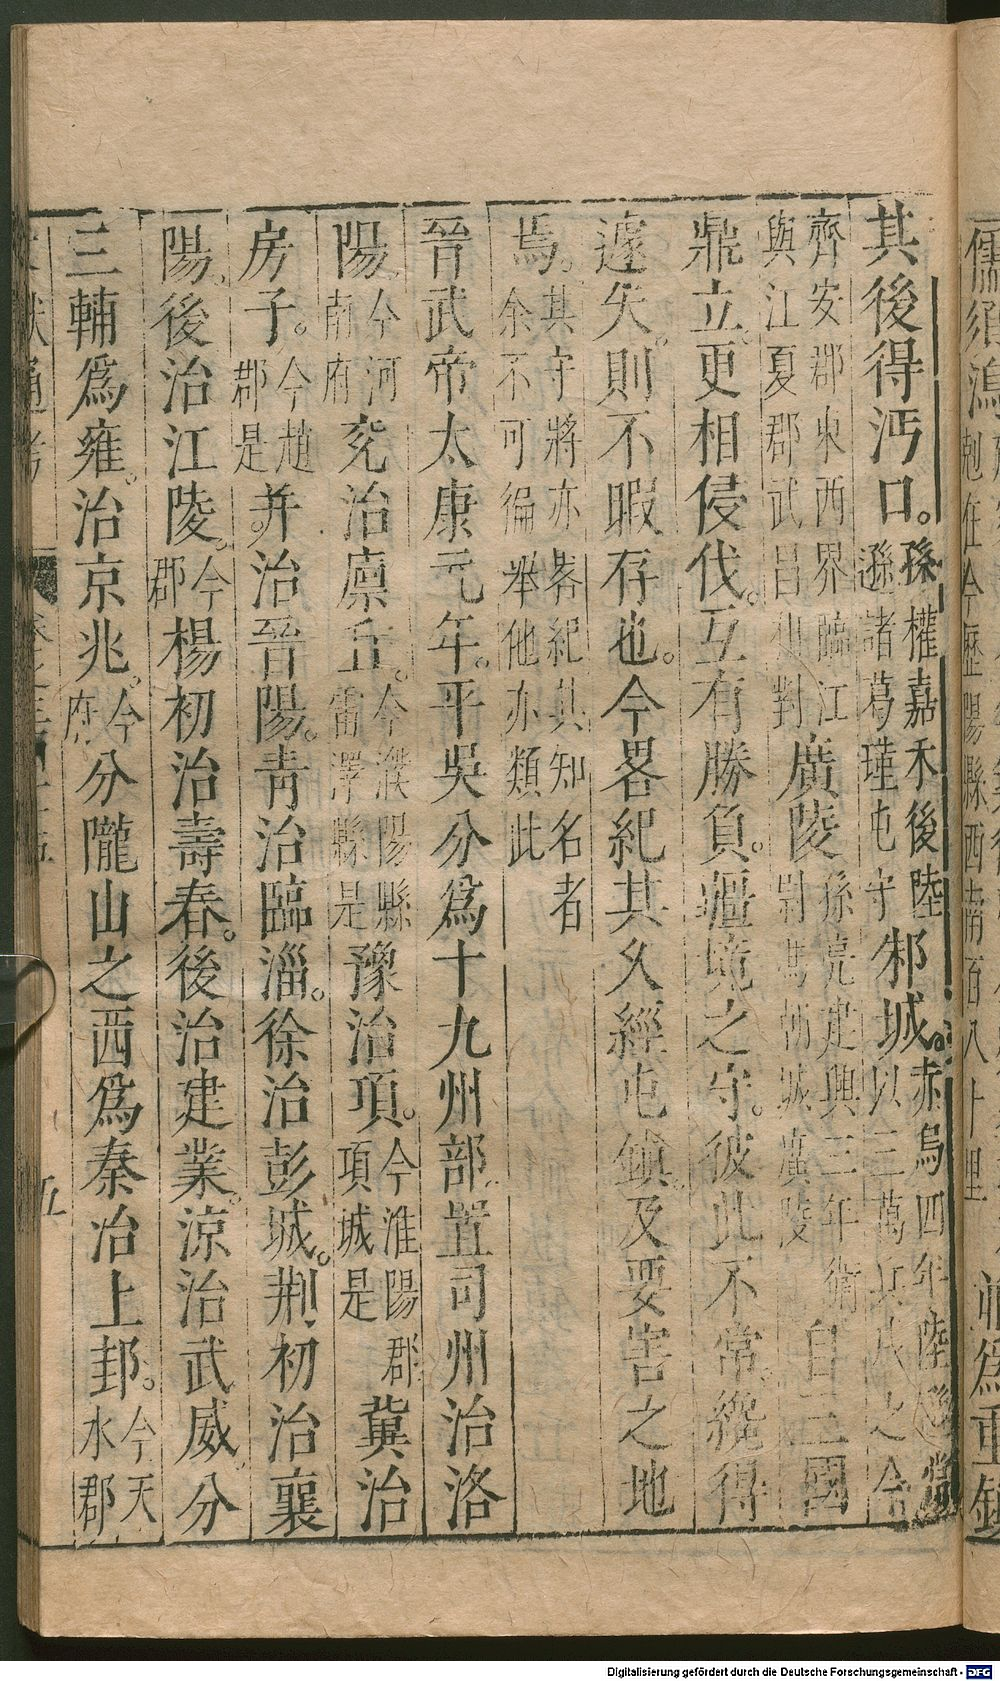 其後得沔口。孫權嘉禾後陸遜諸葛瑾屯守邾城。赤烏四年陸遜常以三萬兵戍之今
齊安郡東西界臨江與江夏郡武昌相對廣陵孫亮建興二年衛尉馮朝城廣陵自三國
鼎立更相侵伐。互有勝負。疆境之守。彼此不常。纔得
遽失。則不暇存也。今畧紀其久經屯鎮。及要害之地
焉。其守將亦畧紀其知名者余不可徧舉他亦類此
晉武帝太康元年。平吳分爲十九州部置司州治洛
陽。今河南府兖治廩丘。今濮陽縣雷澤縣是豫治項。今淮陽郡項城是冀治
房子。今趙郡是并治晉陽。青治臨淄。徐治彭城。荆初治襄
陽。後治江陵。今郡楊初治壽春。後治建業。涼治武威。分
三輔爲雍。治京兆。今府分隴山之西爲秦治上邽。今天水郡
五
儒須
在今歷陽縣西南百八十里
並爲重鎮
Digitalisierung gefördert durch die Deutsche Forschungsgemeinschaft - DFG